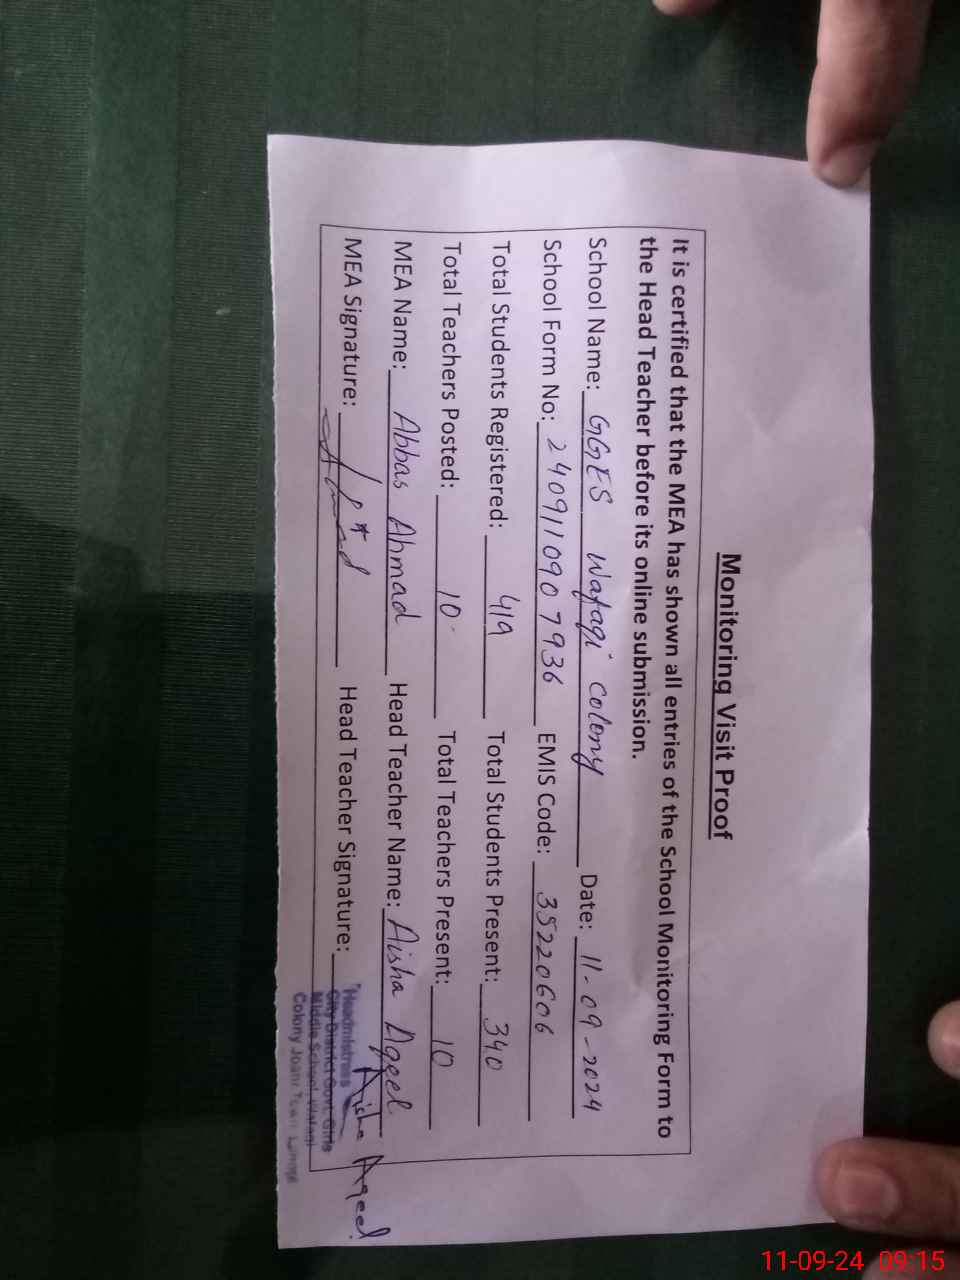 Monitoring Visit Proof
It is certified that the MEA has shown all entries of the School Monitoring Form to
the Head Teacher before its online submission.
School Name: GGES Wafaqi colony Date: 11-09-2024
School Form No: 2409110907936 EMIS Code: 35220606
Total Students Registered: 419 Total Students Present: 340
Total Teachers Posted: 10 Total Teachers Present: 10
MEA Name: Abbas Ahmad Head Teacher Name: Aisha Aqeel
MEA Signature: Head Teacher Signature: Aisha Aqeel.
Headmistress
City District Govt. Girls
Middle School Wafaqi
Colony Joahr Town Lahore
11-09-24 09:15